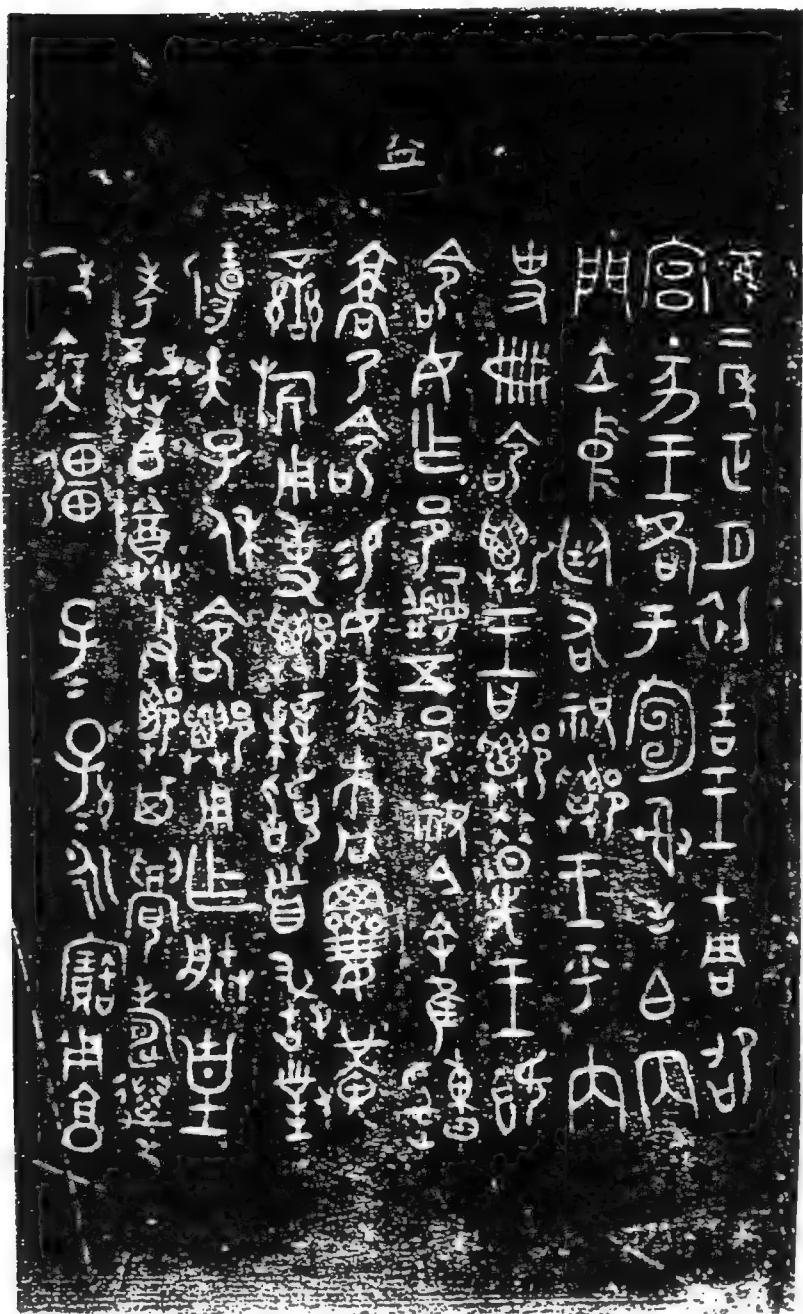 隹二年正月初吉王才周邵
宮丁亥王各于宣射毛白內
門立中廷右祝鄦王乎內
史冊命鄦王曰鄦昔先王既
命女乍邑𤔲五邑祝今余隹䌛
𩫖乃命易女赤巿冋睘黃䜌
旂用事鄦拜𩒨首敢對
揚天子休命鄦用乍朕皇
考龔白尊簋鄦其眉壽萬
年無疆子=孫=永寶用享